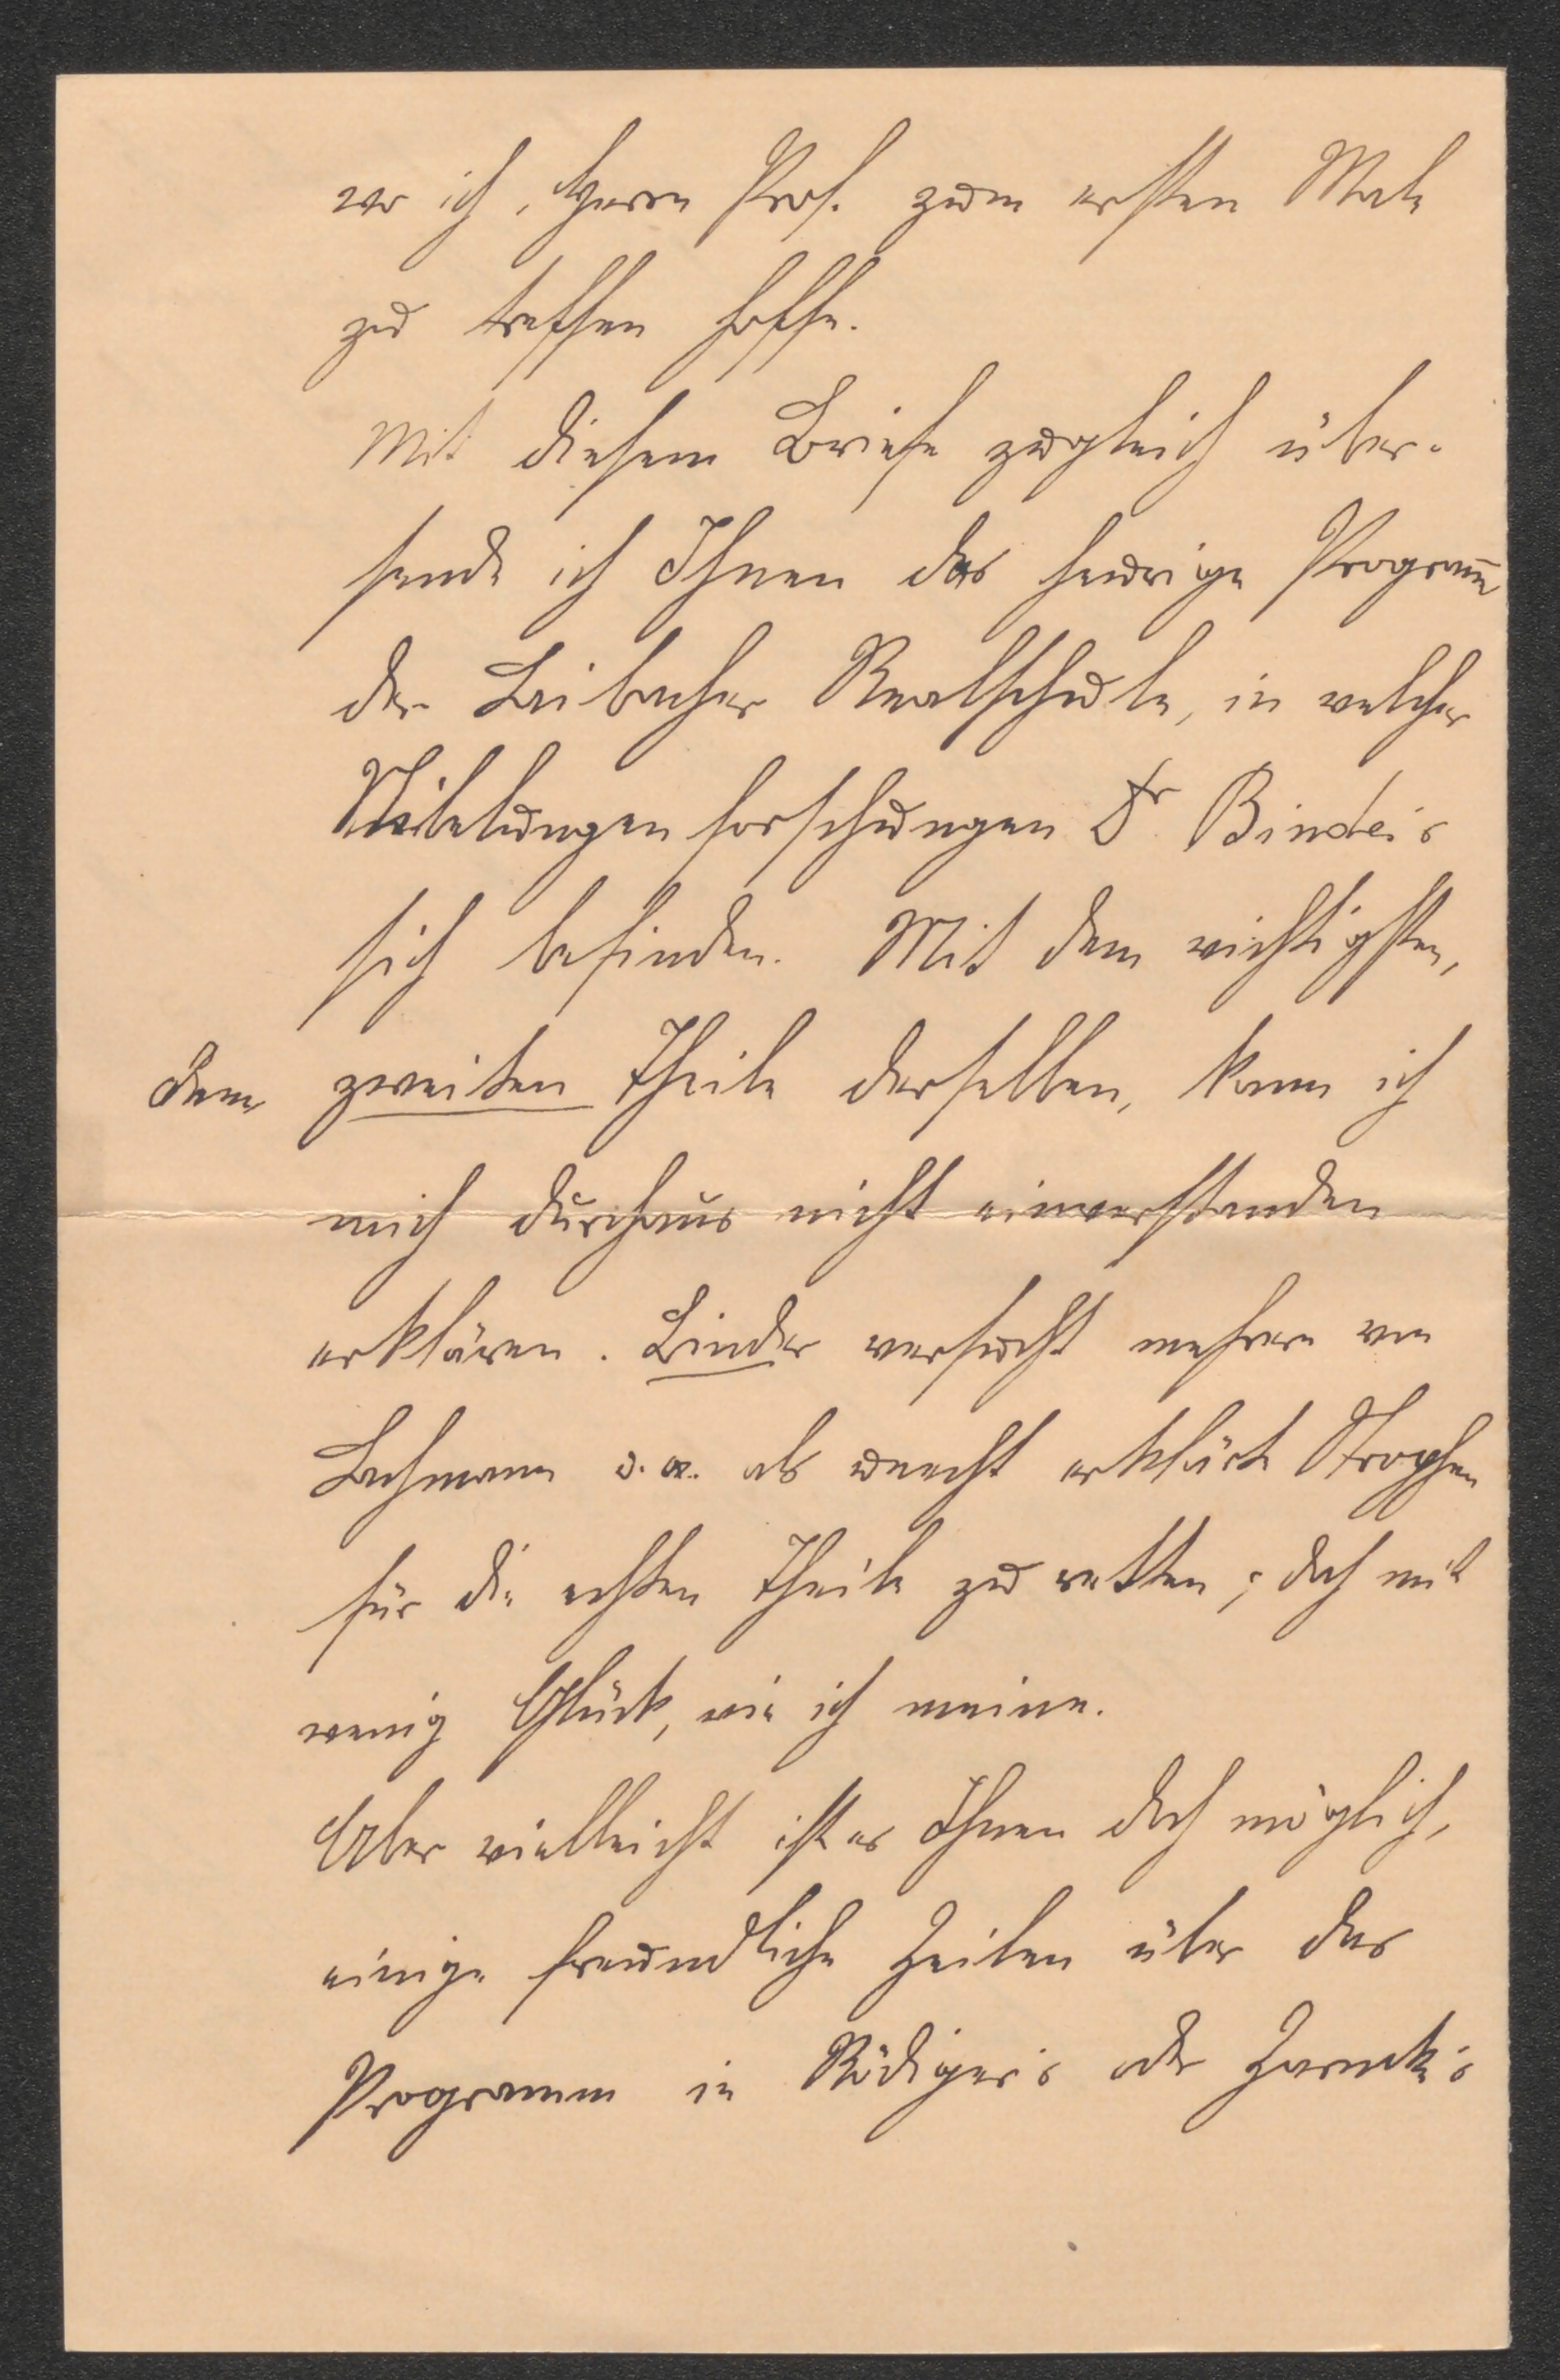 wo ich, Herrn Prof. zum ersten Male
zu treffen hoffe.
Mit diesem Briefe zugleich über-
sende ich Ihnen das heurige Program̅
der Laibacher Realschule, in welcher
Nibelungenforschungen Dr Binder's
sich befinden. Mit dem wichtigsten,
dem zweiten Theile derselben, kann ich
mich durchaus nicht einverstanden
erklären. Binder versucht mehrere von
Lachmann u. a. als unecht erklärte Strophen
für die echten Theile zu retten; doch mit
wenig Glück, wie ich meine.
Aber vielleicht ist es Ihnen doch möglich,
einige freundliche Zeilen über das
Programm in Rödiger's oder Zarncke's